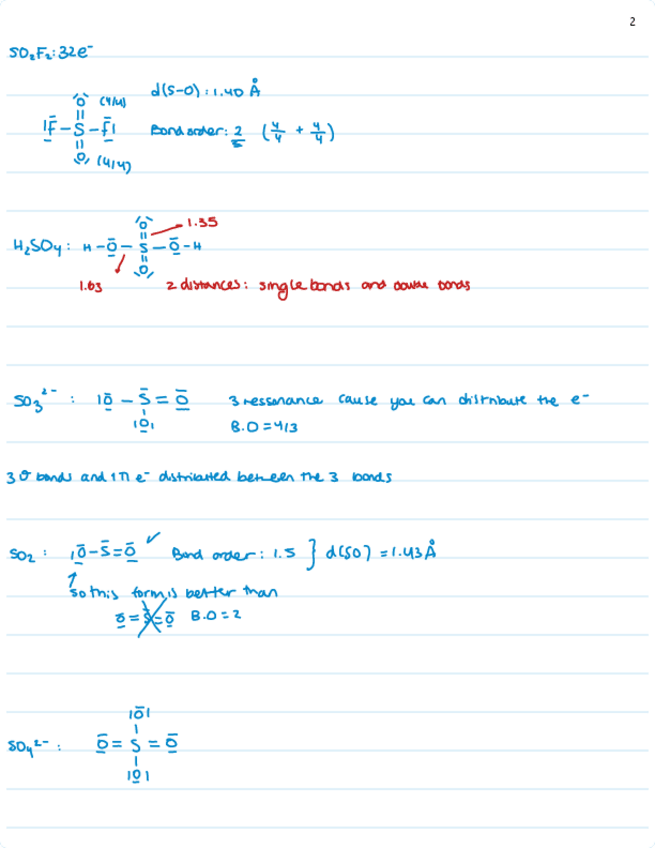 2
SO₂F₂: 32e⁻
O (4/4) d(S-O): 1.40 Å
||
|F̄ – S – F̄| Bond order: 2 (4/4 + 4/4)
||
O (4/4)
O 1.35
||
H₂SO₄: H – Ō – S – Ō – H
||
O
1.63 2 distances: single bonds and double bonds
SO₃²⁻ : |Ō – S̄ = Ō 3 ressonance cause you can distribute the e⁻
|
|O| B.O = 4/3
3 σ bonds and 1 π e⁻ distributed between the 3 bonds
SO₂ : |Ō – S̄ = Ō ✓ Bond order: 1.5 } d(SO) = 1.43 Å
↑
so this form is better than
Ō = S = Ō B.O = 2
|Ō|
|
SO₄²⁻ : Ō = S = Ō
|
|O|